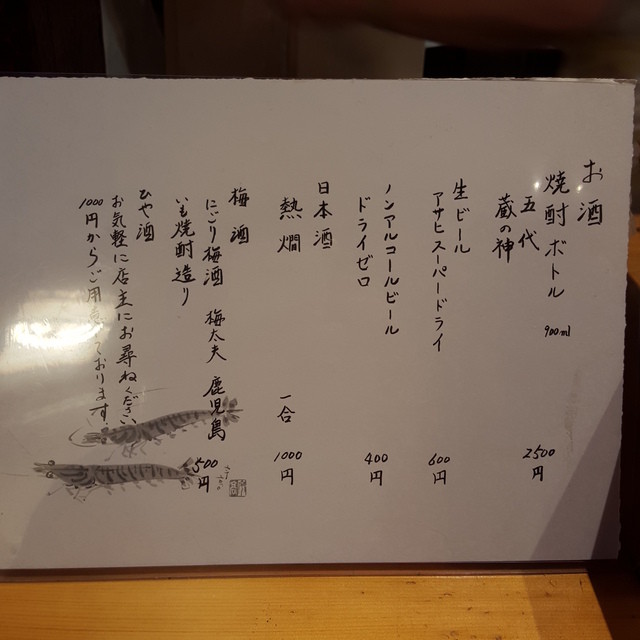 お酒
焼酎ボトル 900ml
五代
蔵の神 2500円
生ビール
アサヒスーパードライ 600円
ノンアルコールビール
ドライゼロ 400円
日本酒
熱燗 一合 1000円
梅酒
にごり梅酒 梅太夫 鹿児島
いも焼酎造り 500円
ひや酒
お気軽に店主にお尋ねください
1000円からご用意しております。